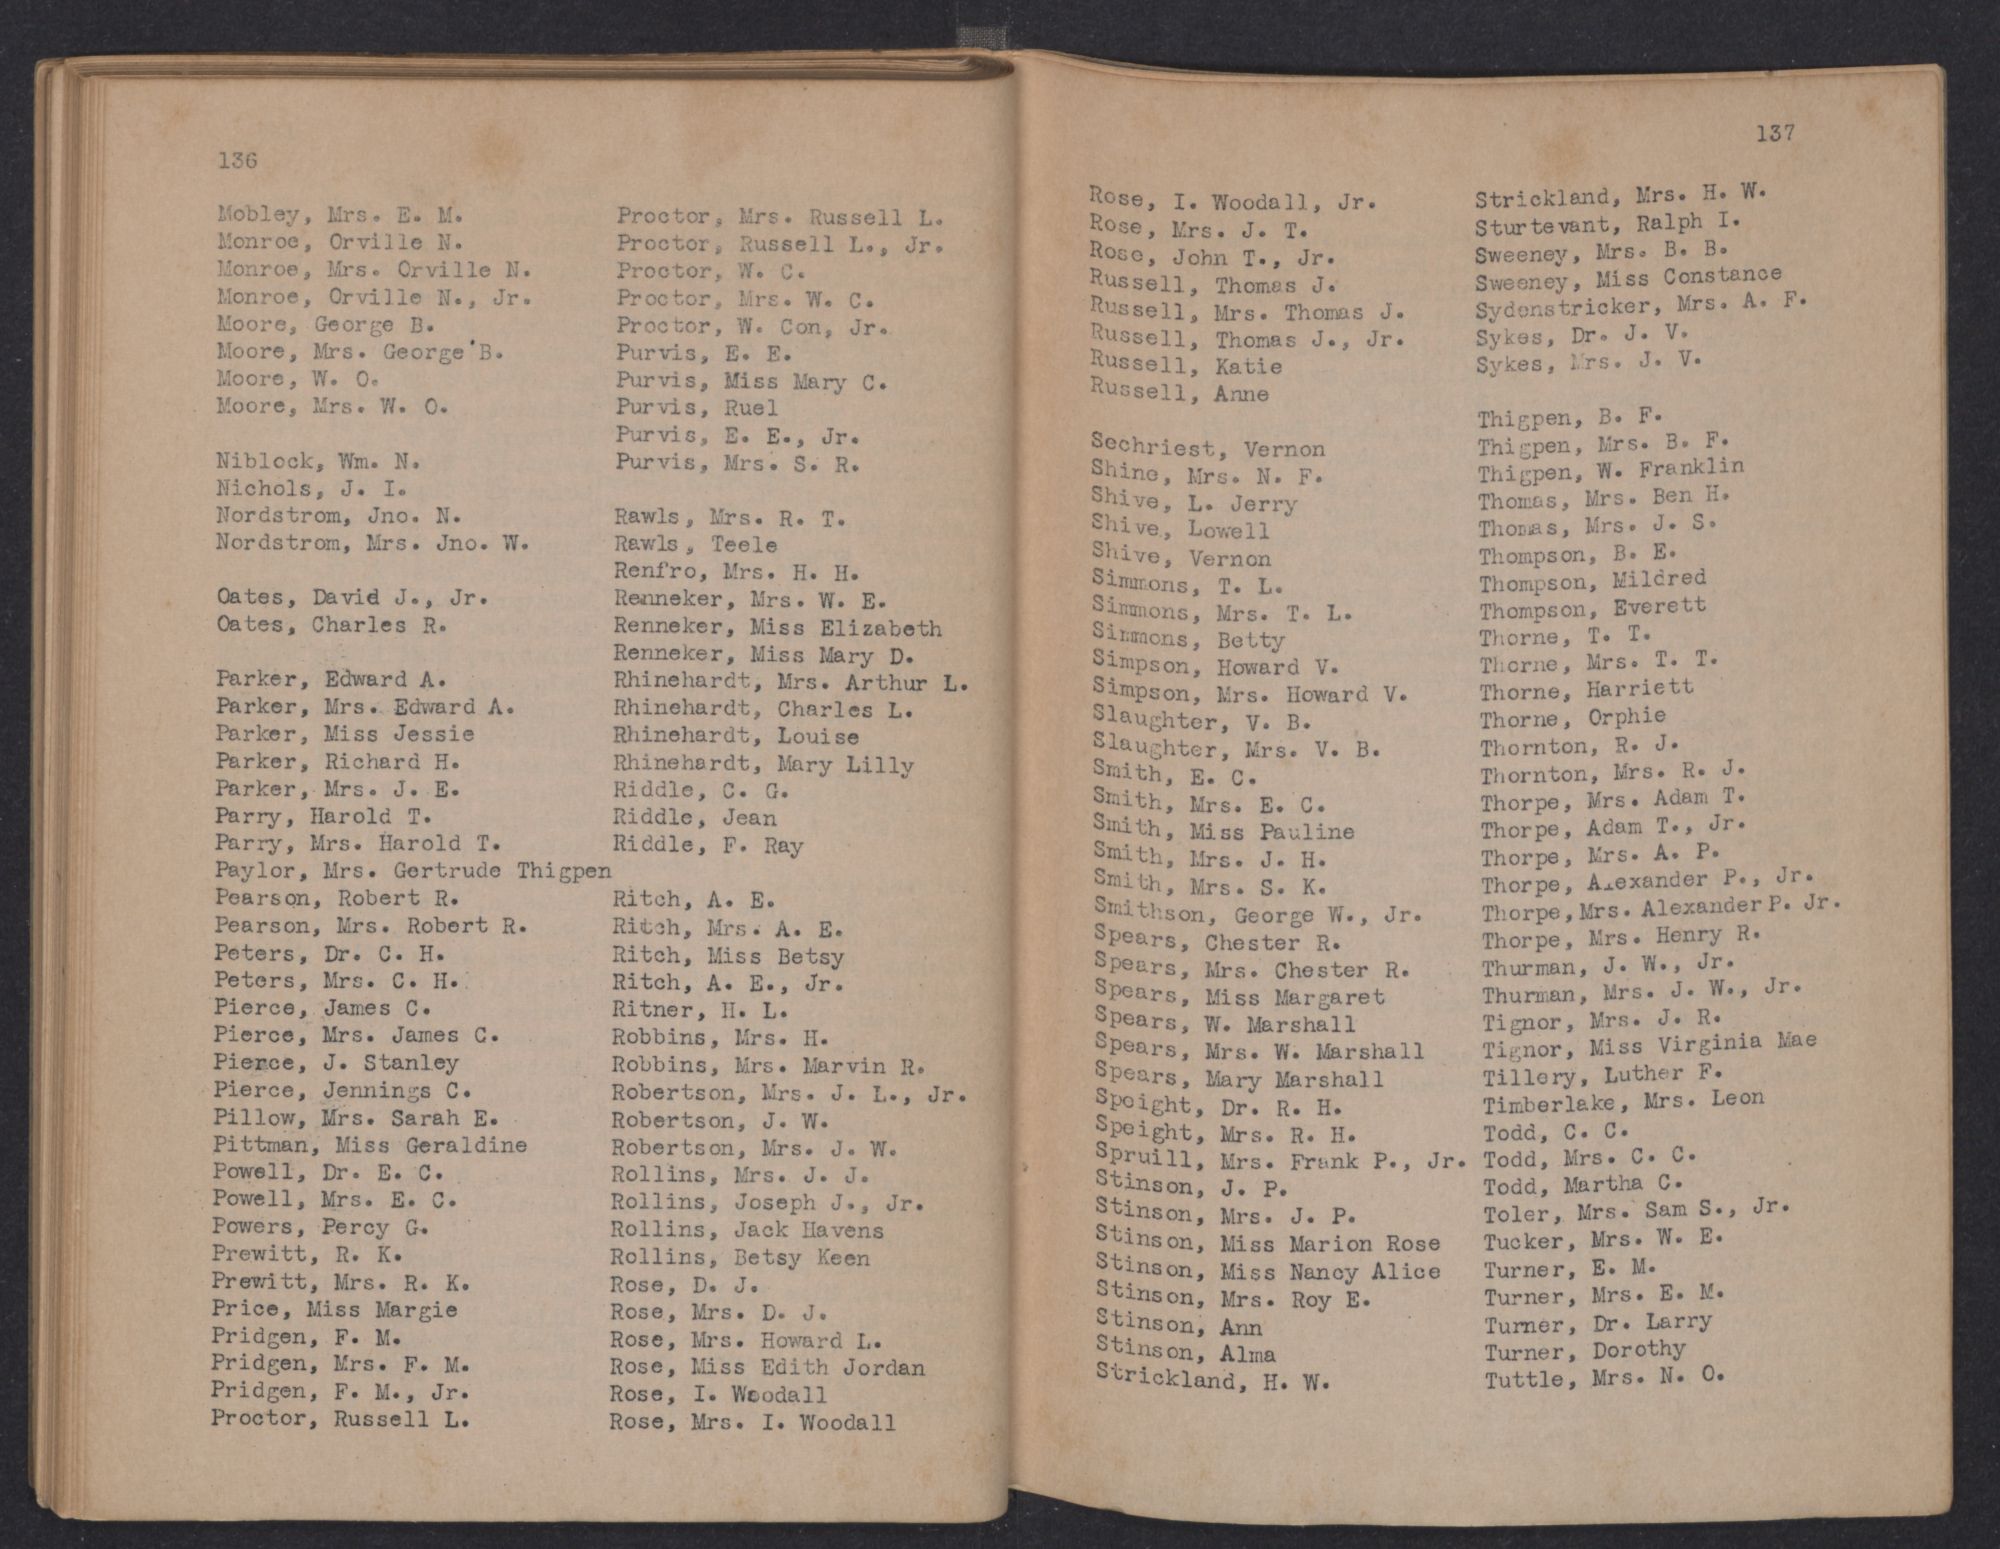 136
Mobley, Mrs. E. M.
Monroe, Orville N.
Monroe, Mrs. Orville N.
Monroe, Orville N., Jr.
Moore, George B.
Moore, Mrs. George B.
Moore, W. O.
Moore, Mrs. W. O.
Niblock, Wm. N.
Nichols, J. I.
Nordstrom, Jno. N.
Nordstrom, Mrs. Jno. W.
Oates, David J., Jr.
Oates, Charles R.
Parker, Edward A.
Parker, Mrs. Edward A.
Parker, Miss Jessie
Parker, Richard H.
Parker, Mrs. J. E.
Parry, Harold T.
Parry, Mrs. Harold T.
Paylor, Mrs. Gertrude Thigpen
Pearson, Robert R.
Pearson, Mrs. Robert R.
Peters, Dr. C. H.
Peters, Mrs. C. H.
Pierce, James C.
Pierce, Mrs. James C.
Pierce, J. Stanley
Pierce, Jennings C.
Pillow, Mrs. Sarah E.
Pittman, Miss Geraldine
Powell, Dr. E. C.
Powell, Mrs. E. C.
Powers, Percy G.
Prewitt, R. K.
Prewitt, Mrs. R. K.
Price, Miss Margie
Pridgen, F. M.
Pridgen, Mrs. F. M.
Pridgen, F. M., Jr.
Proctor, Russell L.
Proctor, Mrs. Russell L.
Proctor, Russell L., Jr.
Proctor, W. C.
Proctor, Mrs. W. C.
Proctor, W. Con, Jr.
Purvis, E. E.
Purvis, Miss Mary C.
Purvis, Ruel
Purvis, E. E., Jr.
Purvis, Mrs. S. R.
Rawls, Mrs. R. T.
Rawls, Teele
Renfro, Mrs. H. H.
Renneker, Mrs. W. E.
Renneker, Miss Elizabeth
Renneker, Miss Mary D.
Rhinehardt, Mrs. Arthur L.
Rhinehardt, Charles L.
Rhinehardt, Louise
Rhinehardt, Mary Lilly
Riddle, C. G.
Riddle, Jean
Riddle, F. Ray
Ritch, A. E.
Ritch, Mrs. A. E.
Ritch, Miss Betsy
Ritch, A. E., Jr.
Ritner, H. L.
Robbins, Mrs. H.
Robbins, Mrs. Marvin R.
Robertson, Mrs. J. L., Jr.
Robertson, J. W.
Robertson, Mrs. J. W.
Rollins, Mrs. J. J.
Rollins, Joseph J., Jr.
Rollins, Jack Havens
Rollins, Betsy Keen
Rose, D. J.
Rose, Mrs. D. J.
Rose, Mrs. Howard L.
Rose, Miss Edith Jordan
Rose, I. Woodall
Rose, Mrs. I. Woodall
137
Rose, I. Woodall, Jr.
Rose, Mrs. J. T.
Rose, John T., Jr.
Russell, Thomas J.
Russell, Mrs. Thomas J.
Russell, Thomas J., Jr.
Russell, Katie
Russell, Anne
Sechriest, Vernon
Shine, Mrs. N. F.
Shive, L. Jerry
Shive, Lowell
Shive, Vernon
Simmons, T. L.
Simmons, Mrs. T. L.
Simmons, Betty
Simpson, Howard V.
Simpson, Mrs. Howard V.
Slaughter, V. B.
Slaughter, Mrs. V. B.
Smith, E. C.
Smith, Mrs. E. C.
Smith, Miss Pauline
Smith, Mrs. J. H.
Smith, Mrs. S. K.
Smithson, George W., Jr.
Spears, Chester R.
Spears, Mrs. Chester R.
Spears, Miss Margaret
Spears, W. Marshall
Spears, Mrs. W. Marshall
Spears, Mary Marshall
Speight, Dr. R. H.
Speight, Mrs. R. H.
Spruill, Mrs. Frank P., Jr.
Stinson, J. P.
Stinson, Mrs. J. P.
Stinson, Miss Marion Rose
Stinson, Miss Nancy Alice
Stinson, Mrs. Roy E.
Stinson, Ann
Stinson, Alma
Strickland, H. W.
Strickland, Mrs. H. W.
Sturtevant, Ralph I.
Sweeney, Mrs. B. B.
Sweeney, Miss Constance
Sydenstricker, Mrs. A. F.
Sykes, Dr. J. V.
Sykes, Mrs. J. V.
Thigpen, B. F.
Thigpen, Mrs. B. F.
Thigpen, W. Franklin
Thomas, Mrs. Ben H.
Thomas, Mrs. J. S.
Thompson, B. E.
Thompson, Mildred
Thompson, Everett
Thorne, T. T.
Thorne, Mrs. T. T.
Thorne, Harriett
Thorne, Orphie
Thornton, R. J.
Thornton, Mrs. R. J.
Thorpe, Mrs. Adam T.
Thorpe, Adam T., Jr.
Thorpe, Mrs. A. P.
Thorpe, Alexander P., Jr.
Thorpe, Mrs. Alexander P. Jr.
Thorpe, Mrs. Henry R.
Thurman, J. W., Jr.
Thurman, Mrs. J. W., Jr.
Tignor, Mrs. J. R.
Tignor, Miss Virginia Mae
Tillery, Luther F.
Timberlake, Mrs. Leon
Todd, C. C.
Todd, Mrs. C. C.
Todd, Martha C.
Toler, Mrs. Sam S., Jr.
Tucker, Mrs. W. E.
Turner, E. M.
Turner, Mrs. E. M.
Turner, Dr. Larry
Turner, Dorothy
Tuttle, Mrs. N. O.